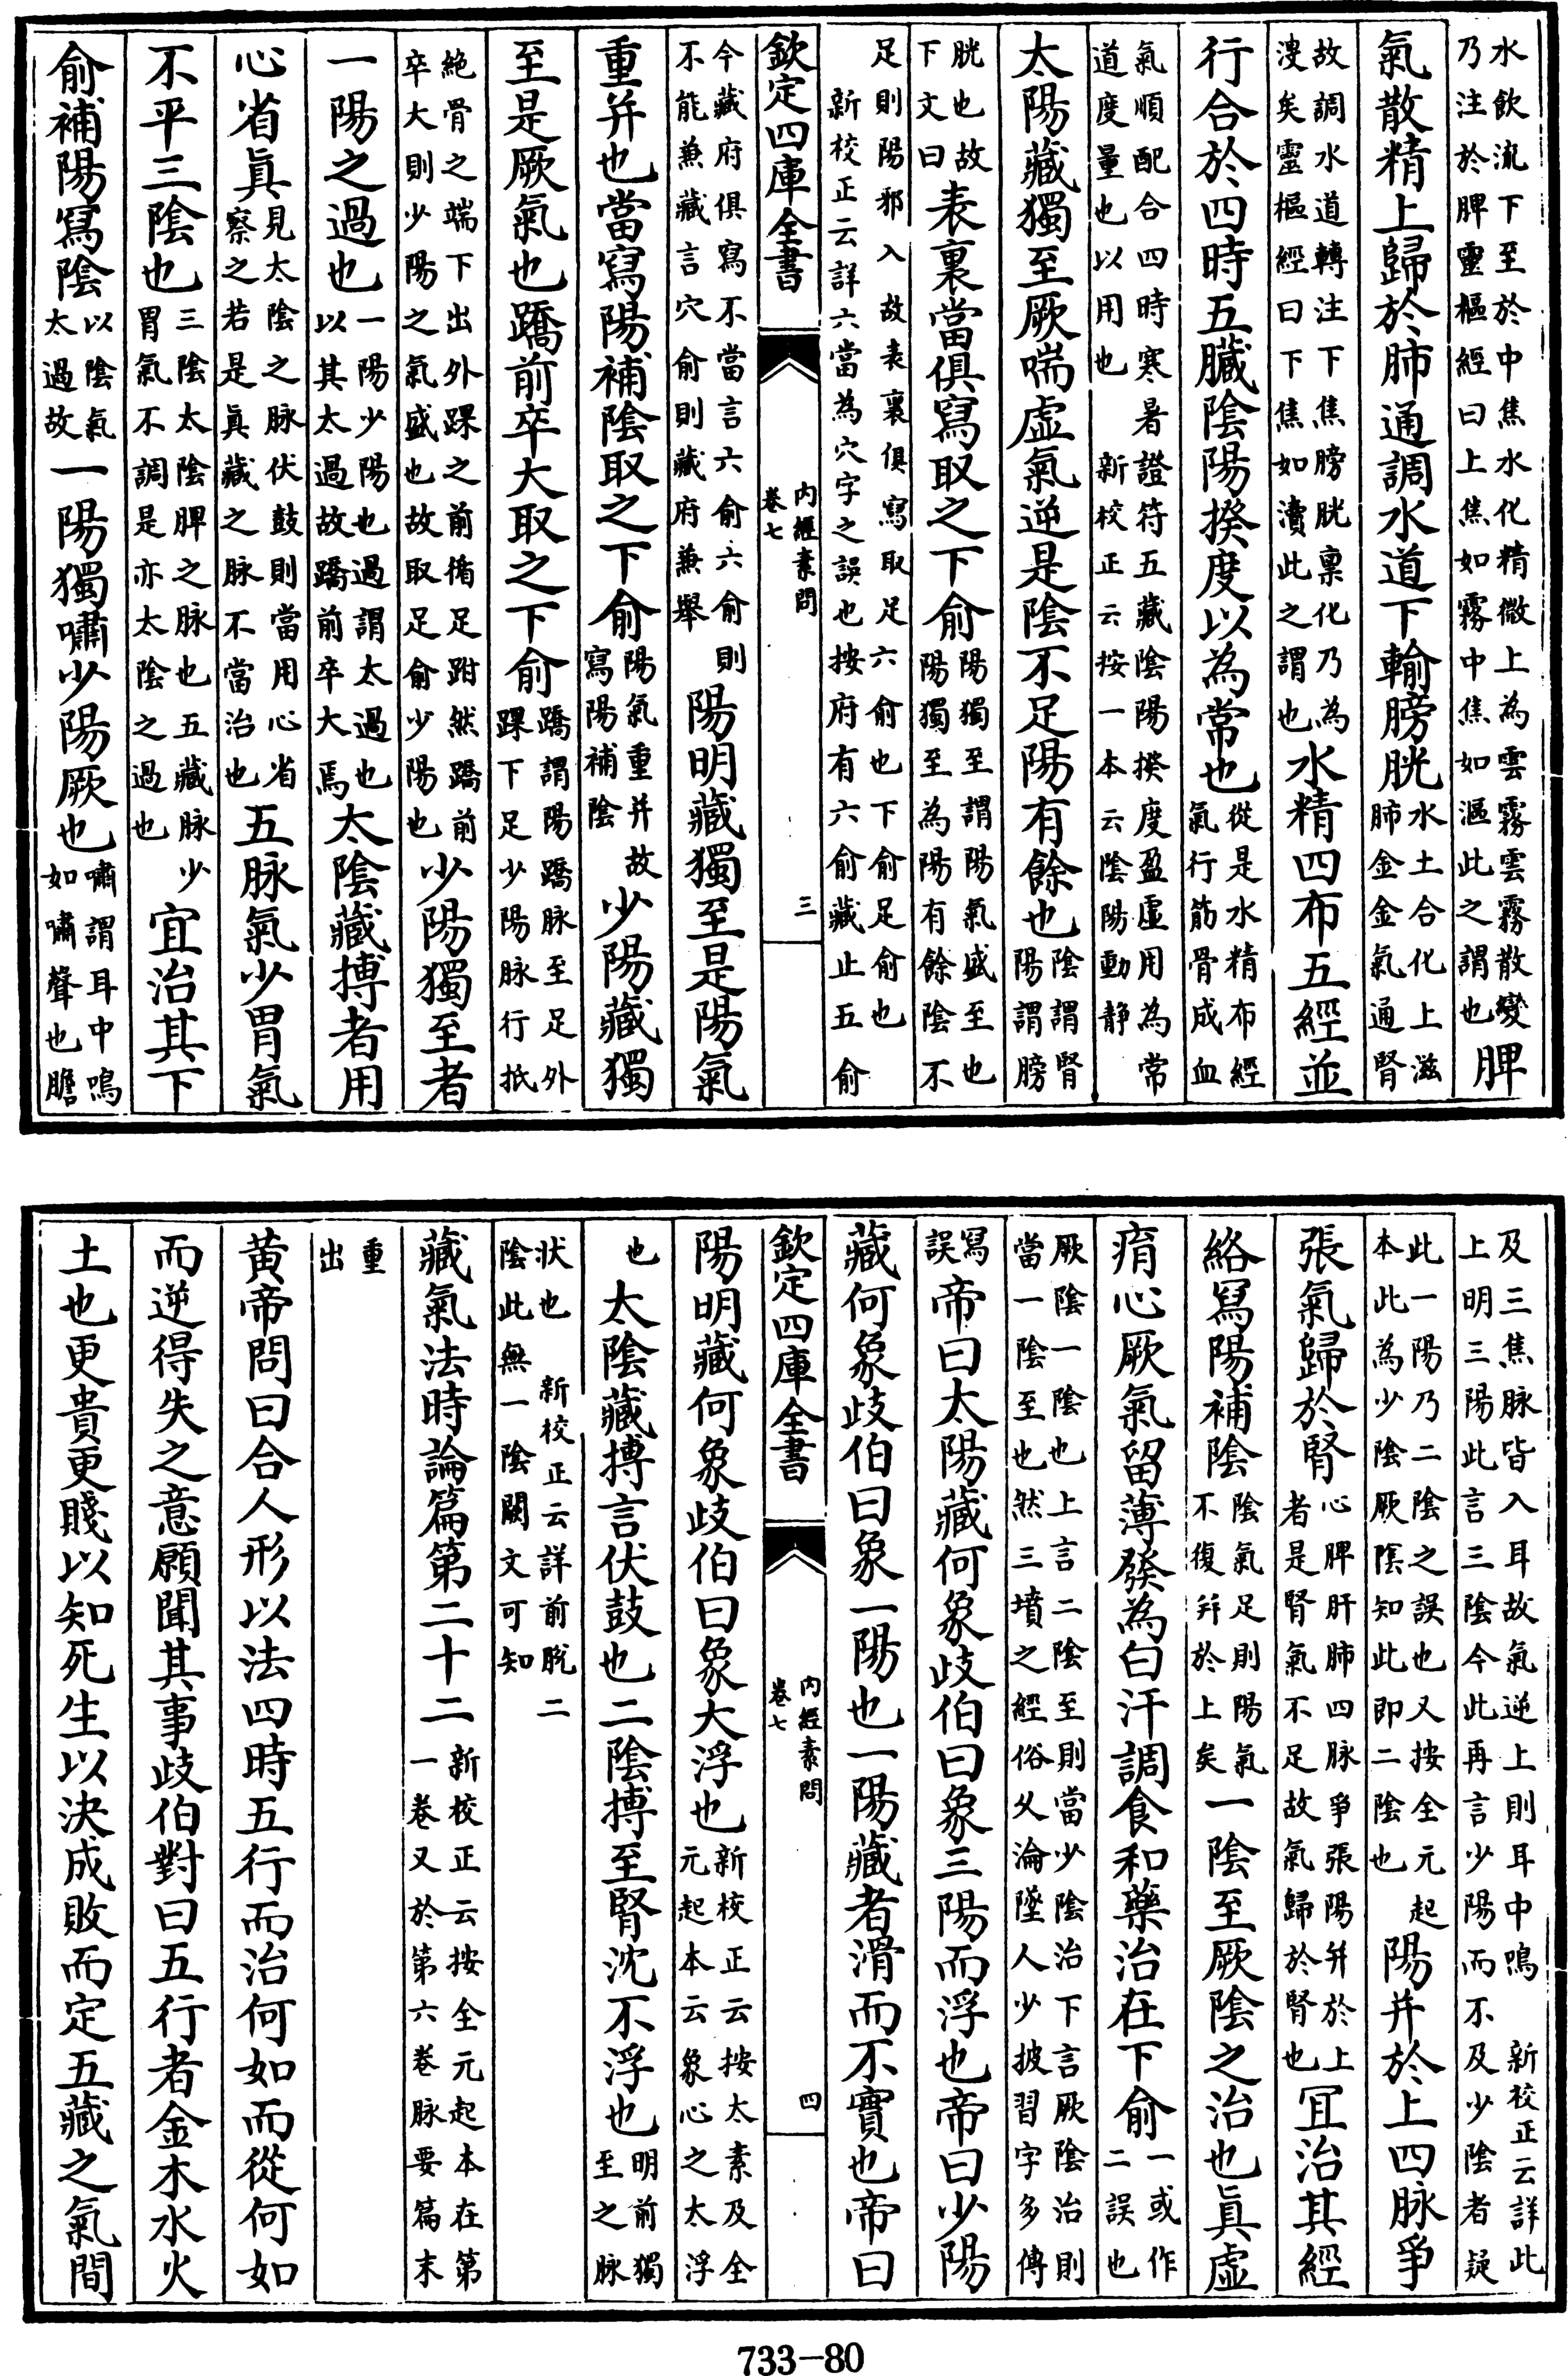 水飲流下至於中焦水化精微上為雲霧雲霧散變
乃注於脾靈樞經曰上焦如霧中焦如漚此之謂也脾
氣散精上歸於肺通調水道下輸膀胱水土合化上滋
肺金金氣通腎
故調水道轉注下焦膀胱稟化乃為
溲矣靈樞經曰下焦如瀆此之謂也水精四布五經並
行合於四時五臟陰陽揆度以為常也從是水精布經
氣行筋骨成血
氣順配合四時寒暑證符五藏陰陽揆度盈虛用為常
道度量也以用也 新校正云按一本云陰陽動静
太陽藏獨至厥喘虛氣逆是陰不足陽有餘也陰謂腎
陽謂膀
胱也故
下文曰表裏當俱寫取之下俞陽獨至謂陽氣盛至也
陽獨至為陽有餘陰不
足則陽邪入故表裏俱寫取足六俞也下俞足俞也
新校正云詳六當為穴字之誤也按府有六俞藏止五俞
欽定四庫全書
內經素問
卷七
三
今藏府俱寫不當言六俞六俞則
不能兼藏言穴俞則藏府兼舉陽明藏獨至是陽氣
重并也當寫陽補陰取之下俞陽氣重并故
寫陽補陰少陽藏獨
至是厥氣也蹻前卒大取之下俞蹻謂陽蹻脉至足外
踝下足少陽脉行抵
絶骨之端下出外踝之前循足跗然蹻前
卒大則少陽之氣盛也故取足俞少陽也少陽獨至者
一陽之過也一陽少陽也過謂太過也
以其太過故蹻前卒大焉太陰藏搏者用
心省真見太陰之脉伏鼓則當用心省
察之若是真藏之脉不當治也五脉氣少胃氣
不平三陰也三陰太陰脾之脉也五藏脉少
胃氣不調是亦太陰之過也宜治其下
俞補陽寫陰以陰氣
太過故一陽獨嘯少陽厥也嘯謂耳中鳴
如嘯聲也膽
及三焦脉皆入耳故氣逆上則耳中鳴 新校正云詳此
上明三陽此言三陰今此再言少陽而不及少陰者疑
此一陽乃二陰之誤也又按全元起
本此為少陰厥陰知此即二陰也陽并於上四脉爭
張氣歸於腎心脾肝肺四脉爭張陽并於上
者是腎氣不足故氣歸於腎也宜治其經
絡寫陽補陰陰氣足則陽氣
不復并於上矣一陰至厥陰之治也真虛
㾓心厥氣留薄發為白汗調食和藥治在下俞一或作
二誤也
厥陰一陰也上言二陰至則當少陰治下言厥陰治則
當一陰至也然三墳之經俗乆淪墜人少披習字多傳
寫
誤帝曰太陽藏何象歧伯曰象三陽而浮也帝曰少陽
藏何象歧伯曰象一陽也一陽藏者滑而不實也帝曰
欽定四庫全書
內經素問
卷七
四
陽明藏何象歧伯曰象大浮也新校正云按太素及全
元起本云象心之太浮
也太陰藏搏言伏鼓也二陰搏至腎沈不浮也明前獨
至之脉
狀也 新校正云詳前脫二
陰此無一陰闕文可知
藏氣法時論篇第二十二新校正云按全元起本在第
一卷又於第六卷脉要篇末
重
出
黃帝問曰合人形以法四時五行而治何如而從何如
而逆得失之意願聞其事歧伯對曰五行者金木水火
土也更貴更賤以知死生以決成敗而定五藏之氣間
733-80